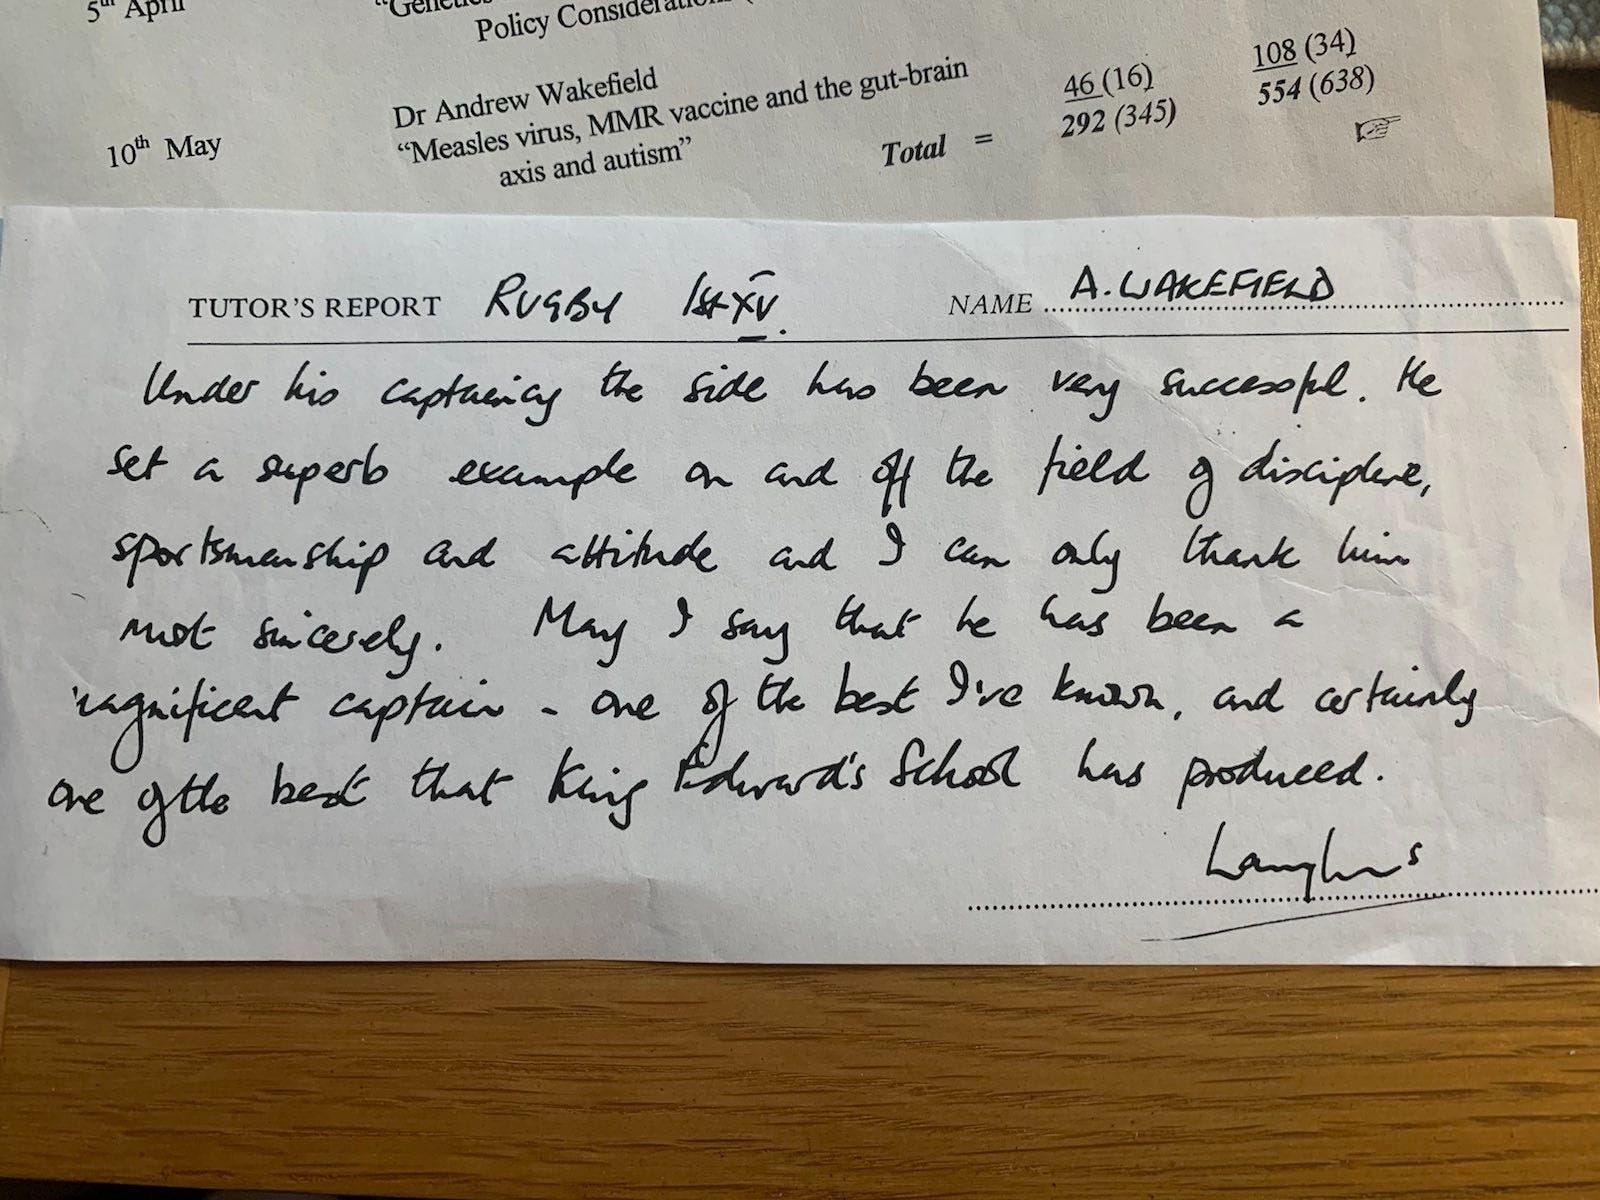 5th April
"Genetics
Policy Considerations (
10th May
Dr Andrew Wakefield
"Measles virus, MMR vaccine and the gut-brain
axis and autism"
46 (16)
108 (34)
Total =
292 (345)
554 (638)
TUTOR'S REPORT RUGBY 1st XV. NAME A. WAKEFIELD
Under his captaincy the side has been very successful. He
set a superb example on and off the field of discipline,
sportsmanship and attitude and I can only thank him
most sincerely. May I say that he has been a
magnificent captain - one of the best I've known, and certainly
one of the best that King Edward's School has produced.